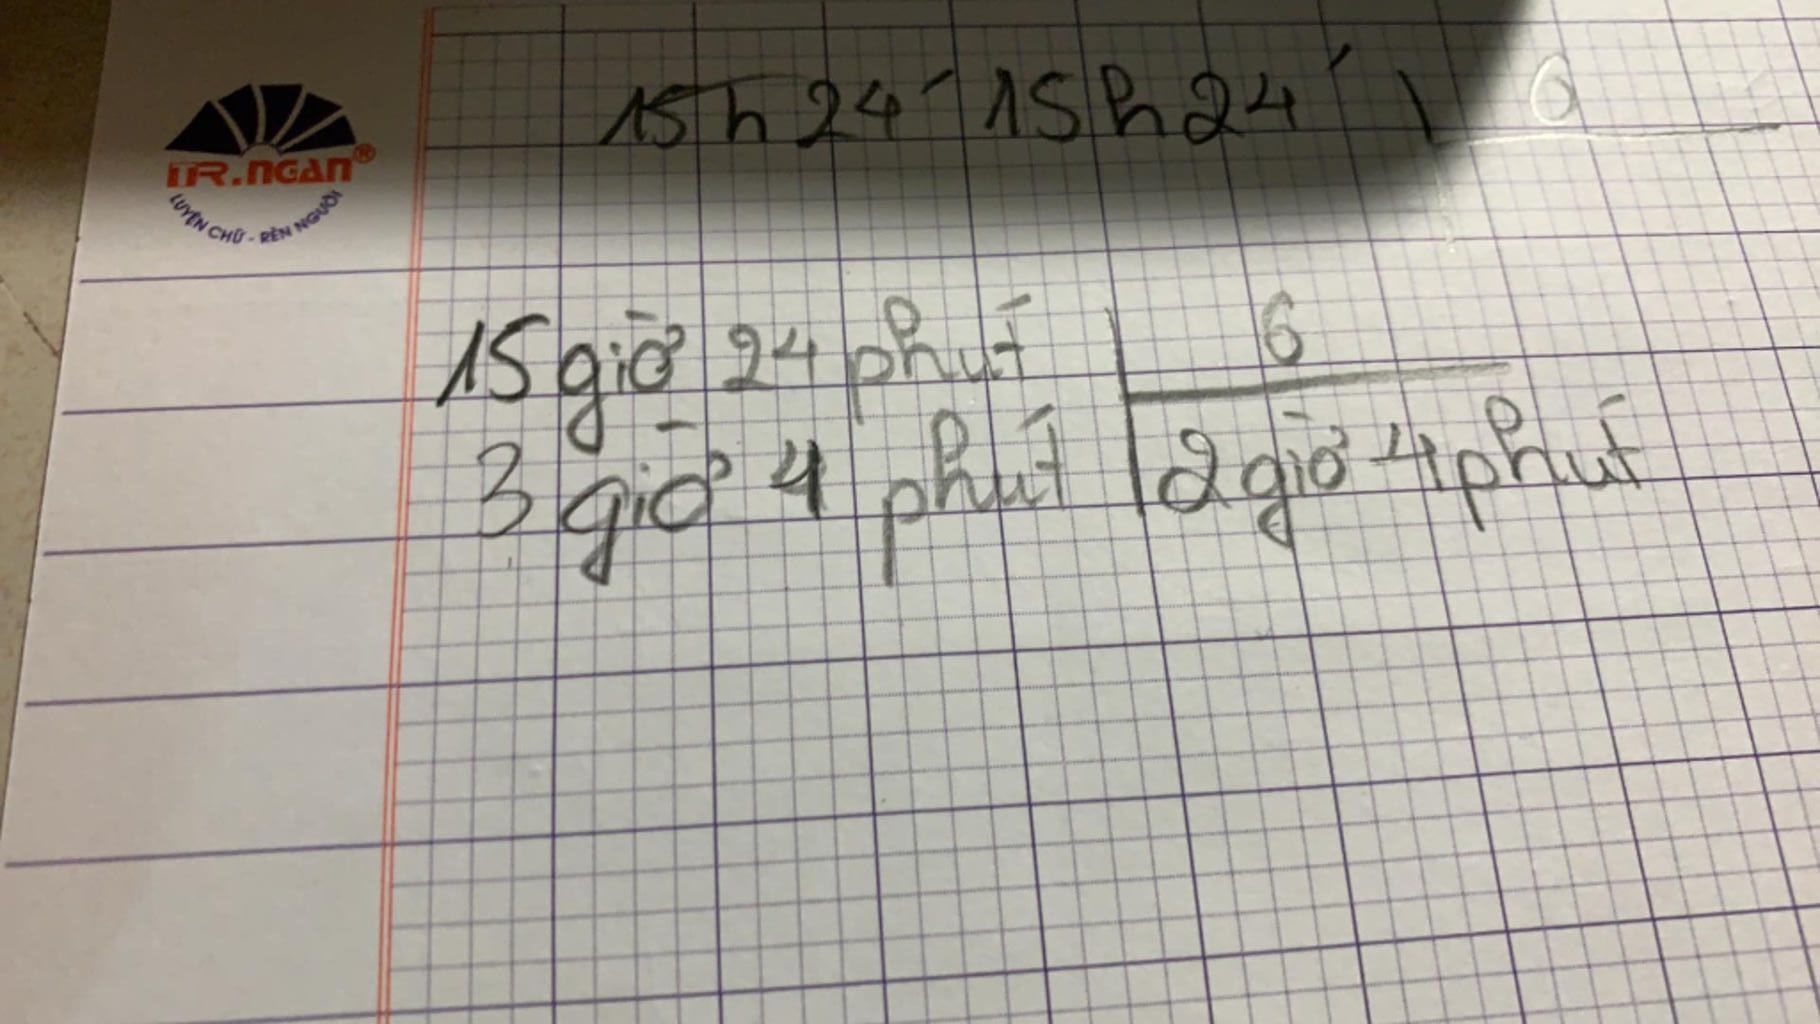 TR.NGAN®
LUYỆN CHỮ - RÈN NGƯỜI
15h24´ 15h24´ 6
15 giờ 24 phút 6
3 giờ 4 phút 2 giờ 4 phút